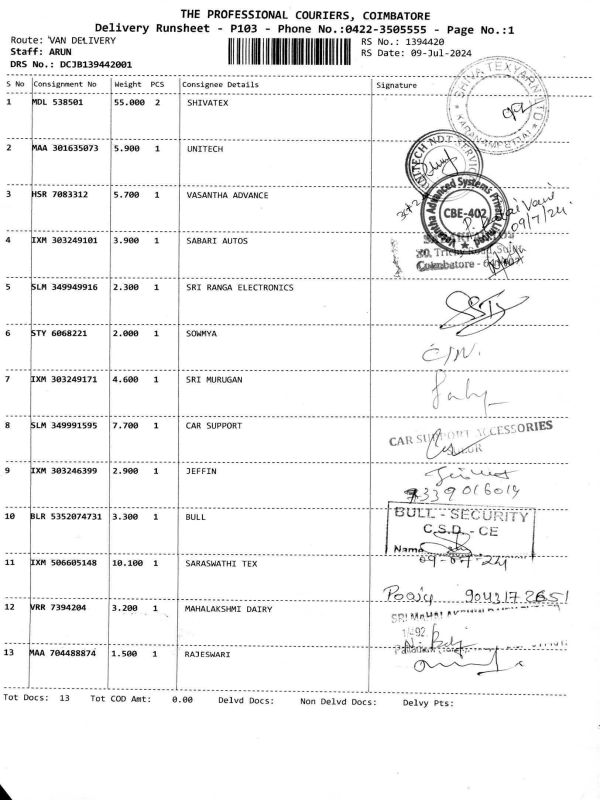 THE PROFESSIONAL COURIERS, COIMBATORE
Delivery Runsheet - P103 - Phone No.:0422-3505555 - Page No.:1
Route: VAN DELIVERY
RS No.: 1394420
Staff: ARUN
RS Date: 09-Jul-2024
DRS No.: DCJB139442001
S No Consignment No Weight PCS Consignee Details Signature
1 MDL 538501 55.000 2 SHIVATEX
SHIVA TEXYARN LTD
2 MAA 301635073 5.900 1 UNITECH
3 HSR 7083312 5.700 1 VASANTHA ADVANCE
Vasantha Advanced Systems Private Limited
CBE-402
09/7/24
4 IXM 303249101 3.900 1 SABARI AUTOS
Coimbatore -
5 SLM 349949916 2.300 1 SRI RANGA ELECTRONICS
6 STY 6068221 2.000 1 SOWMYA
7 IXM 303249171 4.600 1 SRI MURUGAN
8 SLM 349991595 7.700 1 CAR SUPPORT
CAR SUPPORT ACCESSORIES
9 IXM 303246399 2.900 1 JEFFIN
9339016014
10 BLR 5352074731 3.300 1 BULL
BULL - SECURITY
C.S.D. - CE
Name
09-07-24
11 IXM 506605148 10.100 1 SARASWATHI TEX
9043172651
12 VRR 7394204 3.200 1 MAHALAKSHMI DAIRY
13 MAA 704488874 1.500 1 RAJESWARI
Tot Docs: 13 Tot COD Amt: 0.00 Delvd Docs: Non Delvd Docs: Delvy Pts: